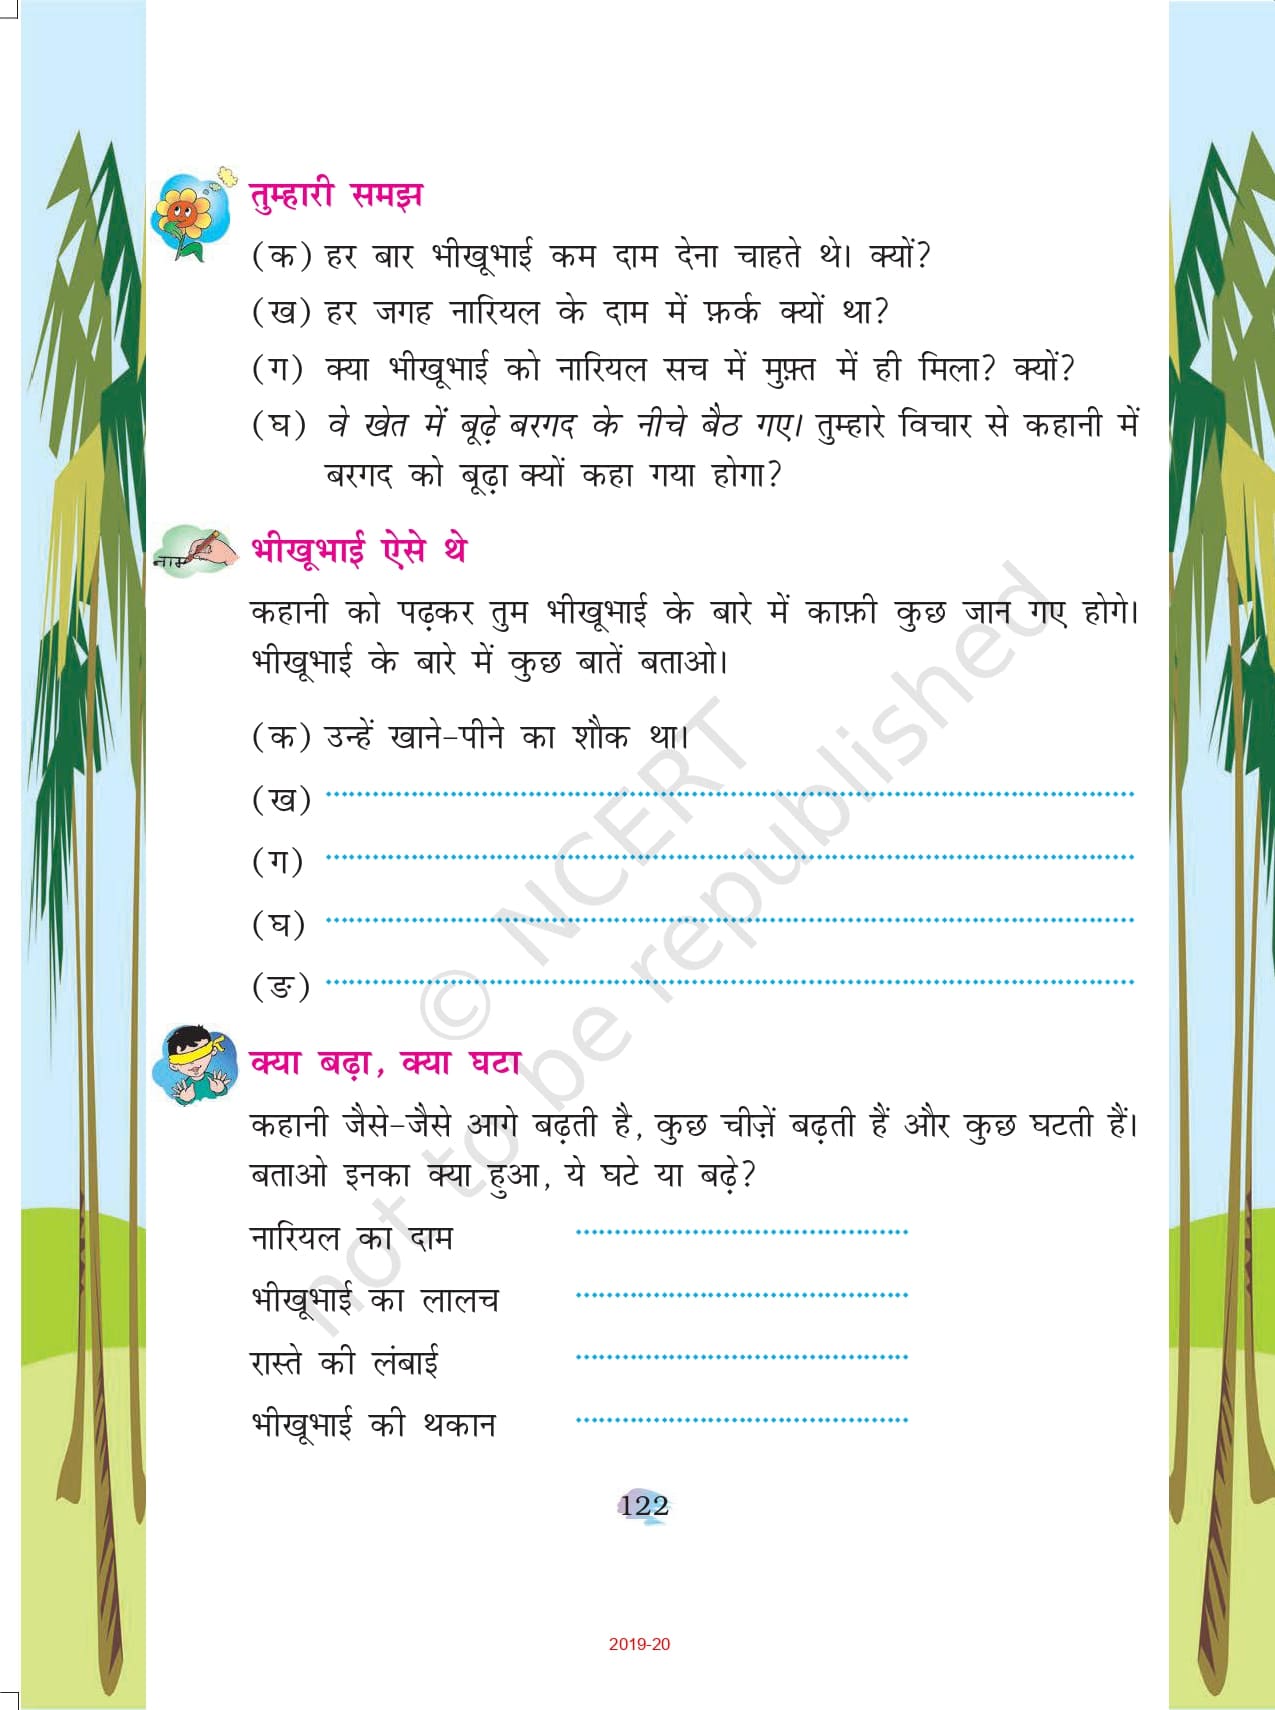 तुम्हारी समझ
(क) हर बार भीखूभाई कम दाम देना चाहते थे। क्यों?
(ख) हर जगह नारियल के दाम में फ़र्क क्यों था?
(ग) क्या भीखूभाई को नारियल सच में मुफ़्त में ही मिला? क्यों?
(घ) वे खेत में बूढ़े बरगद के नीचे बैठ गए। तुम्हारे विचार से कहानी में
बरगद को बूढ़ा क्यों कहा गया होगा?
नाम
भीखूभाई ऐसे थे
कहानी को पढ़कर तुम भीखूभाई के बारे में काफ़ी कुछ जान गए होगे।
भीखूभाई के बारे में कुछ बातें बताओ।
(क) उन्हें खाने-पीने का शौक था।
(ख)
(ग)
(घ)
(ङ)
क्या बढ़ा, क्या घटा
कहानी जैसे-जैसे आगे बढ़ती है, कुछ चीज़ें बढ़ती हैं और कुछ घटती हैं।
बताओ इनका क्या हुआ, ये घटे या बढ़े?
नारियल का दाम
भीखूभाई का लालच
रास्ते की लंबाई
भीखूभाई की थकान
© NCERT
not to be republished
122
2019-20